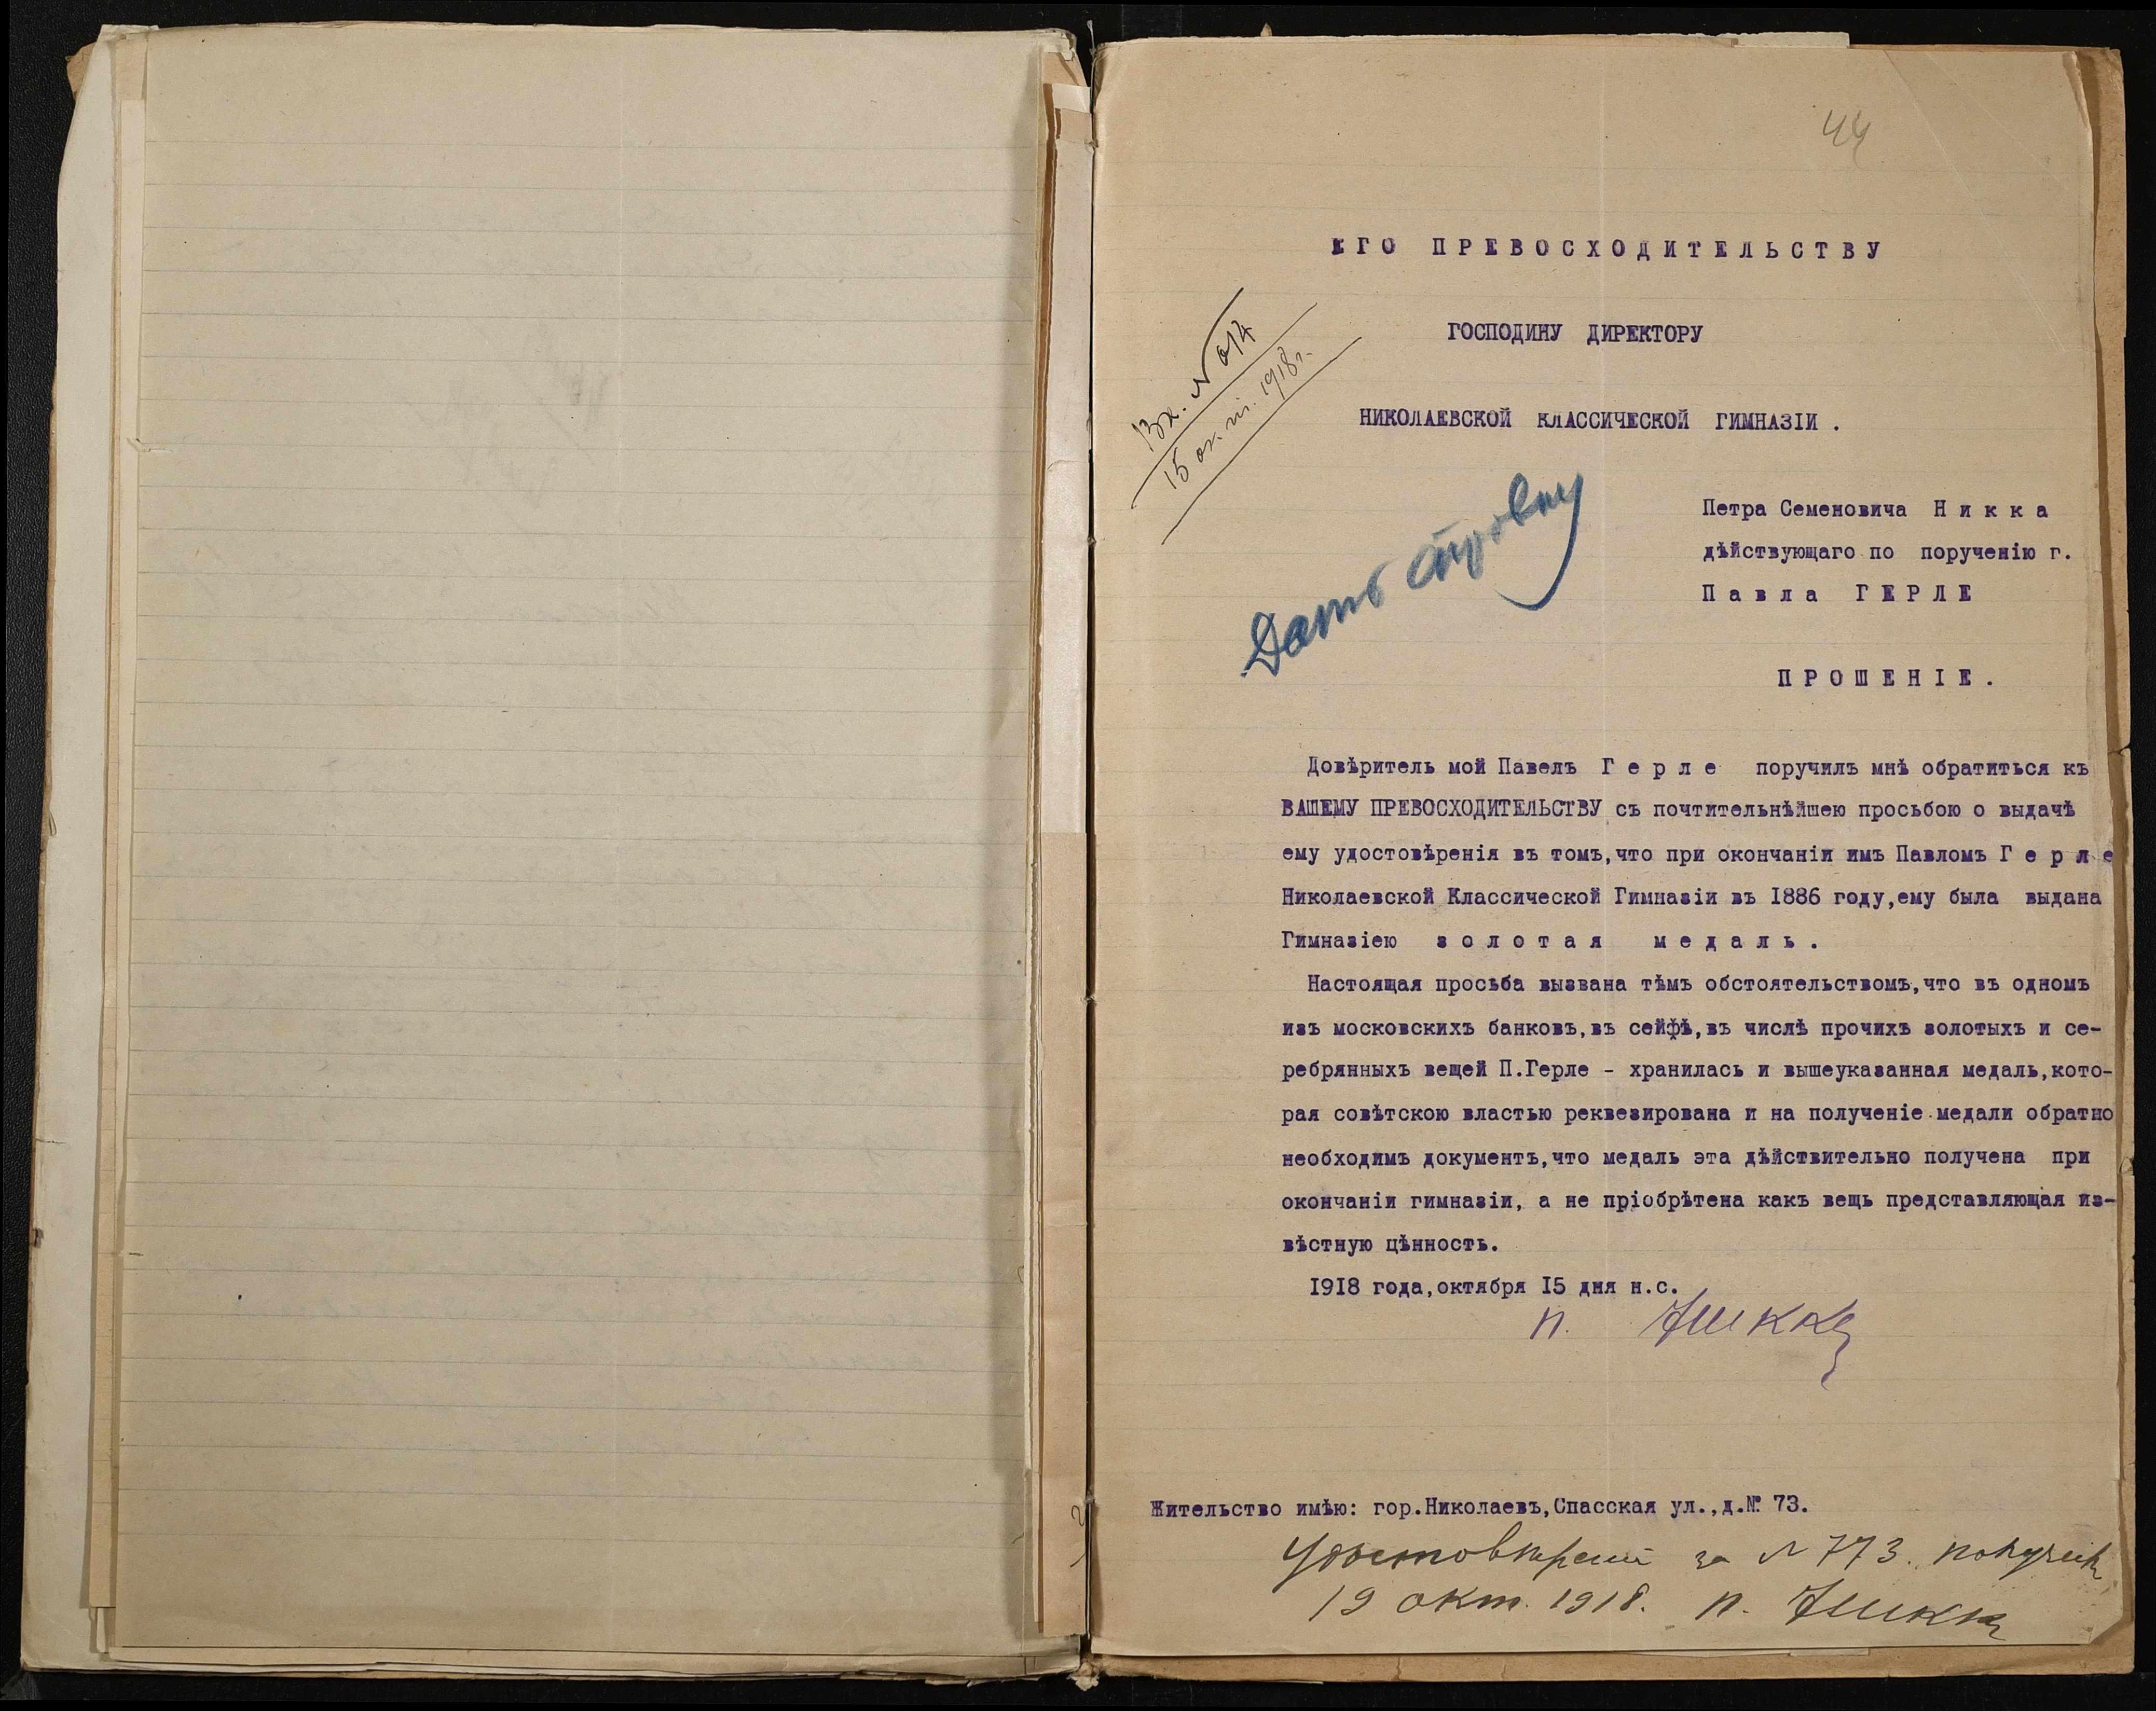 44
ЕГО ПРЕВОСХОДИТЕЛЬСТВУ
ГОСПОДИНУ ДИРЕКТОРУ
НИКОЛАЕВСКОЙ КЛАССИЧЕСКОЙ ГИМНАЗІИ .
Вх. №
15 окт. 1918 г.
Дать справку
Петра Семеновича Н и к к а
дѣйствующаго по порученію г.
П а в л а Г Е Р Л Е
П Р О Ш Е Н І Е .
Довѣритель мой Павелъ Г е р л е поручилъ мнѣ обратиться къ
ВАШЕМУ ПРЕВОСХОДИТЕЛЬСТВУ съ почтительнѣйшею просьбою о выдачѣ
ему удостовѣренія въ томъ,что при окончаніи имъ Павломъ Г е р л е
Николаевской Классической Гимназіи въ 1886 году,ему была выдана
Гимназіею з о л о т а я м е д а л ь .
Настоящая просьба вызвана тѣмъ обстоятельствомъ,что въ одномъ
изъ московскихъ банковъ,въ сейфѣ,въ числѣ прочихъ золотыхъ и се-
ребрянныхъ вещей П.Герле - хранилась и вышеуказанная медаль,кото-
рая совѣтскою властью реквезирована и на полученіе медали обратно
необходимъ документъ,что медаль эта дѣйствительно получена при
окончаніи гимназіи, а не пріобрѣтена какъ вещь представляющая из-
вѣстную цѣнность.
1918 года,октября 15 дня н.с.
П. Никка
Жительство имѣю: гор.Николаевъ,Спасская ул.,д.№ 73.
Удостовѣреніе за № 773. получилъ
19 окт. 1918. П. Никка